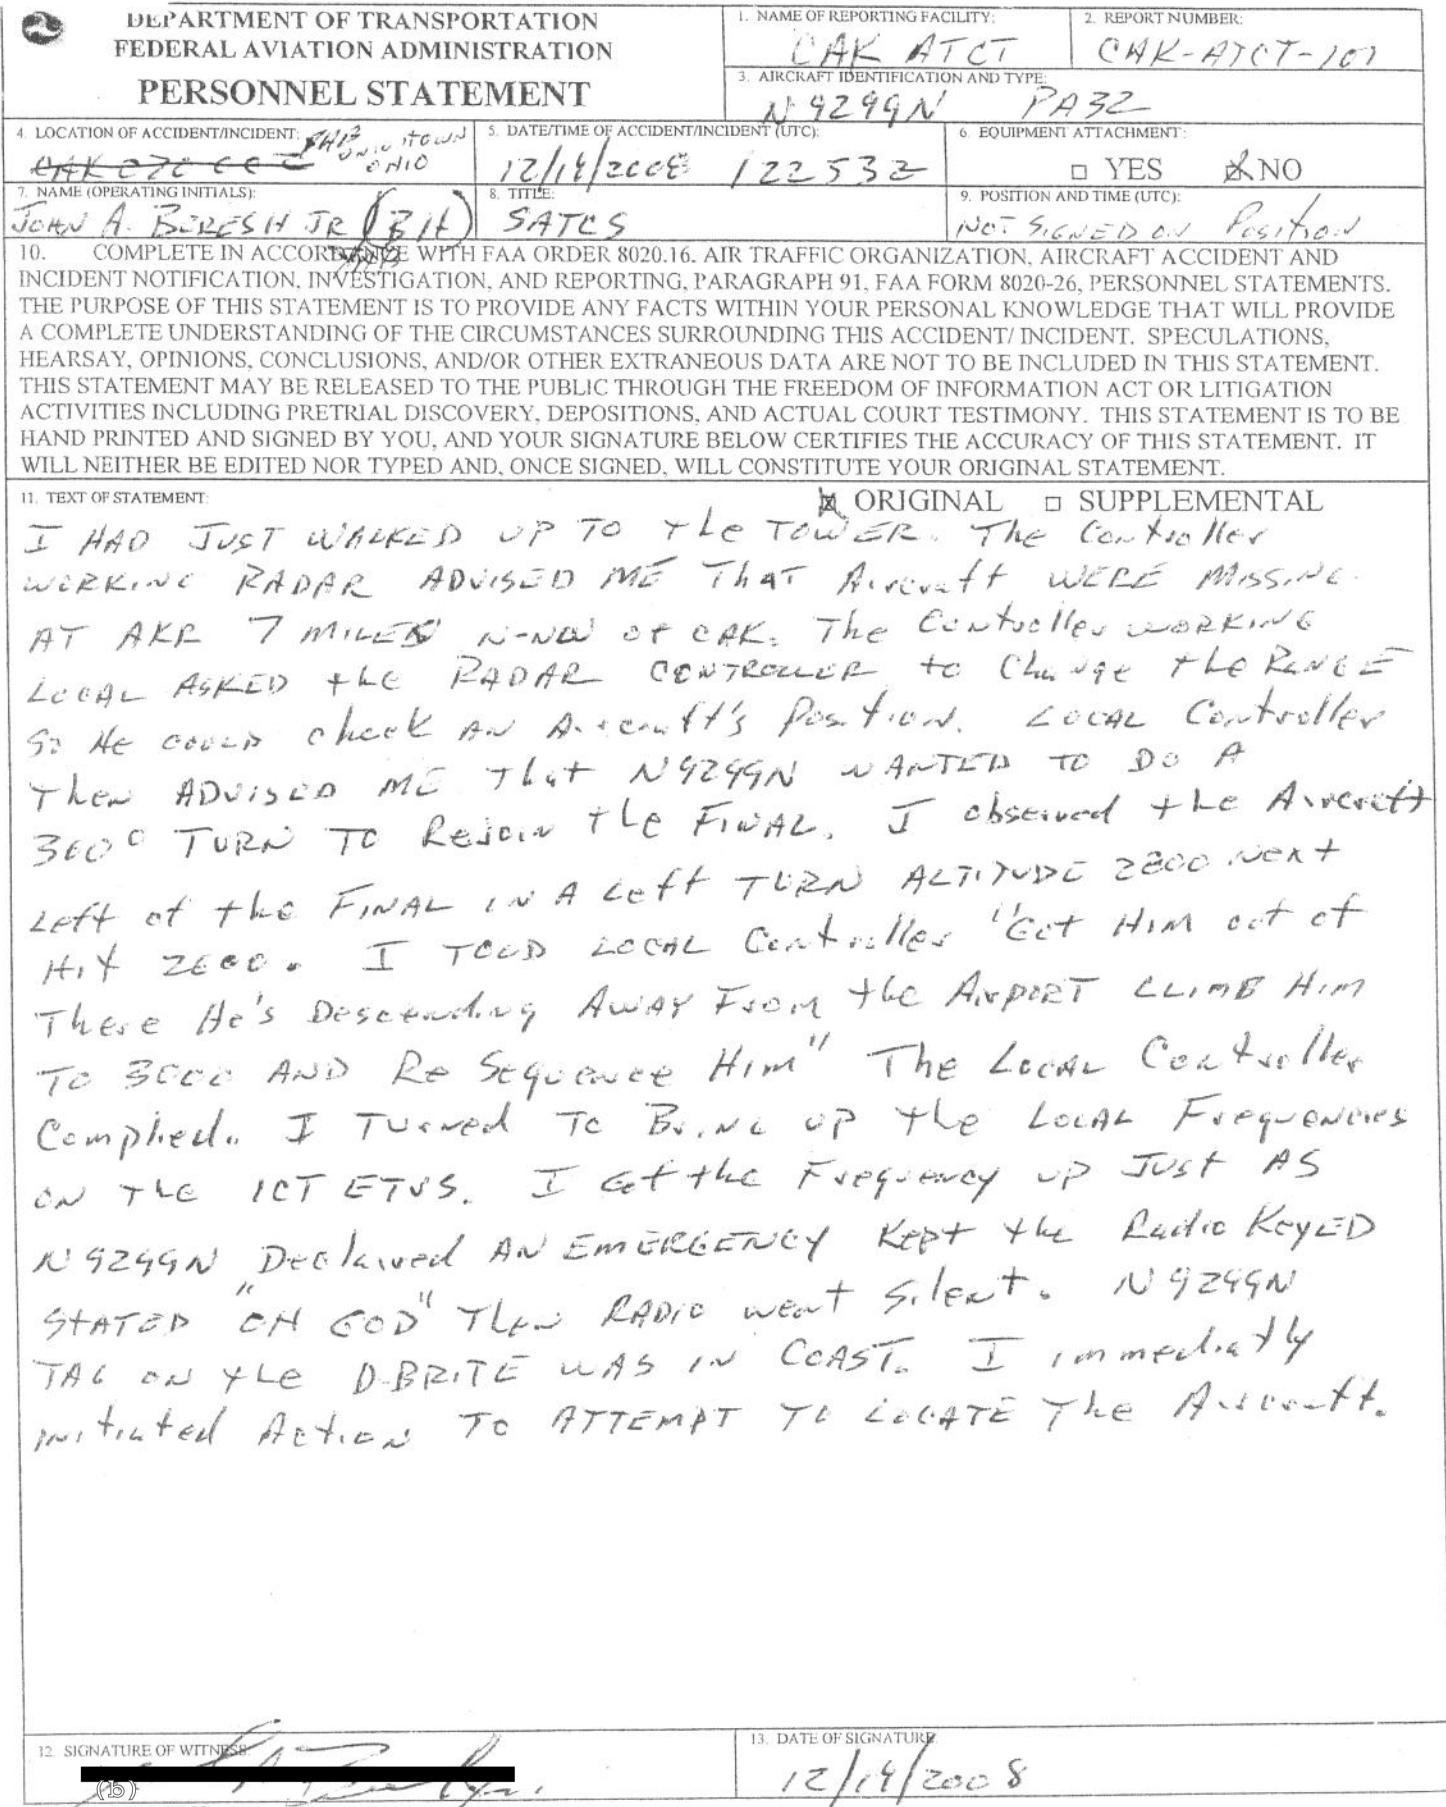 DEPARTMENT OF TRANSPORTATION
FEDERAL AVIATION ADMINISTRATION
PERSONNEL STATEMENT
1. NAME OF REPORTING FACILITY:
CAK ATCT
2. REPORT NUMBER:
CAK-ATCT-101
3. AIRCRAFT IDENTIFICATION AND TYPE:
N9299N PA32
4. LOCATION OF ACCIDENT/INCIDENT:
UNIONTOWN
OHIO
5. DATE/TIME OF ACCIDENT/INCIDENT (UTC):
12/19/2008 122532
6. EQUIPMENT ATTACHMENT:
□ YES ☒ NO
7. NAME (OPERATING INITIALS):
JOHN A. BERESH JR (BH)
8. TITLE:
SATCS
9. POSITION AND TIME (UTC):
NOT SIGNED ON Position
10. COMPLETE IN ACCORDANCE WITH FAA ORDER 8020.16. AIR TRAFFIC ORGANIZATION, AIRCRAFT ACCIDENT AND
INCIDENT NOTIFICATION, INVESTIGATION, AND REPORTING, PARAGRAPH 91, FAA FORM 8020-26, PERSONNEL STATEMENTS.
THE PURPOSE OF THIS STATEMENT IS TO PROVIDE ANY FACTS WITHIN YOUR PERSONAL KNOWLEDGE THAT WILL PROVIDE
A COMPLETE UNDERSTANDING OF THE CIRCUMSTANCES SURROUNDING THIS ACCIDENT/ INCIDENT. SPECULATIONS,
HEARSAY, OPINIONS, CONCLUSIONS, AND/OR OTHER EXTRANEOUS DATA ARE NOT TO BE INCLUDED IN THIS STATEMENT.
THIS STATEMENT MAY BE RELEASED TO THE PUBLIC THROUGH THE FREEDOM OF INFORMATION ACT OR LITIGATION
ACTIVITIES INCLUDING PRETRIAL DISCOVERY, DEPOSITIONS, AND ACTUAL COURT TESTIMONY. THIS STATEMENT IS TO BE
HAND PRINTED AND SIGNED BY YOU, AND YOUR SIGNATURE BELOW CERTIFIES THE ACCURACY OF THIS STATEMENT. IT
WILL NEITHER BE EDITED NOR TYPED AND, ONCE SIGNED, WILL CONSTITUTE YOUR ORIGINAL STATEMENT.
11. TEXT OF STATEMENT: ☒ ORIGINAL □ SUPPLEMENTAL
I HAD JUST WALKED UP TO the TOWER. The Controller
WORKING RADAR ADVISED ME That Aircraft WERE MISSING
AT AKR 7 MILES N-NW of CAK. The Controller WORKING
LOCAL ASKED the RADAR CONTROLLER to Change the RANGE
So He COULD check AN Aircraft's Position. LOCAL Controller
Then ADVISED ME That N9299N WANTED TO DO A
360° TURN TO Rejoin the FINAL. I observed the Aircraft
Left of the FINAL IN A Left TURN ALTITUDE 2800 Next
Hit 2600. I TOLD LOCAL Controller "Get HIM out of
There He's Descending AWAY From the AIrPORT CLIMB HIM
TO 3000 AND Re Sequence HIM" The LOCAL Controller
Complied. I TUrned TO BrING UP the LOCAL Frequencies
ON The ICT ETVS. I Got the Frequency up JUST AS
N9299N Declared AN EMERGENCY Kept the Radio KEYED
STATED "OH GOD" Then RADIO went Silent. N9299N
TAG ON the D-BRITE WAS IN COAST. I immediatly
initiated Action TO ATTEMPT TO LOCATE The Aircraft.
12. SIGNATURE OF WITNESS:
(b)
13. DATE OF SIGNATURE
12/19/2008